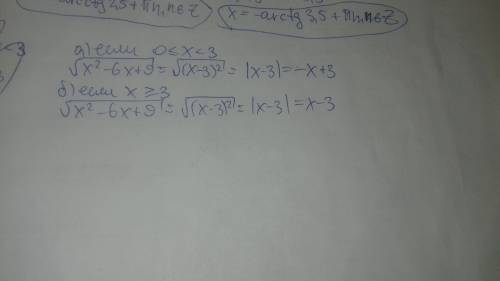 -arcctg 3,5 + πn, n∈Z
x = -arcctg 3,5 + πn, n∈Z
< 3
а) если 0 ≤ x < 3
√(x² - 6x + 9) = √((x-3)²) = |x-3| = -x+3
б) если x ≥ 3
√(x² - 6x + 9) = √((x-3)²) = |x-3| = x-3